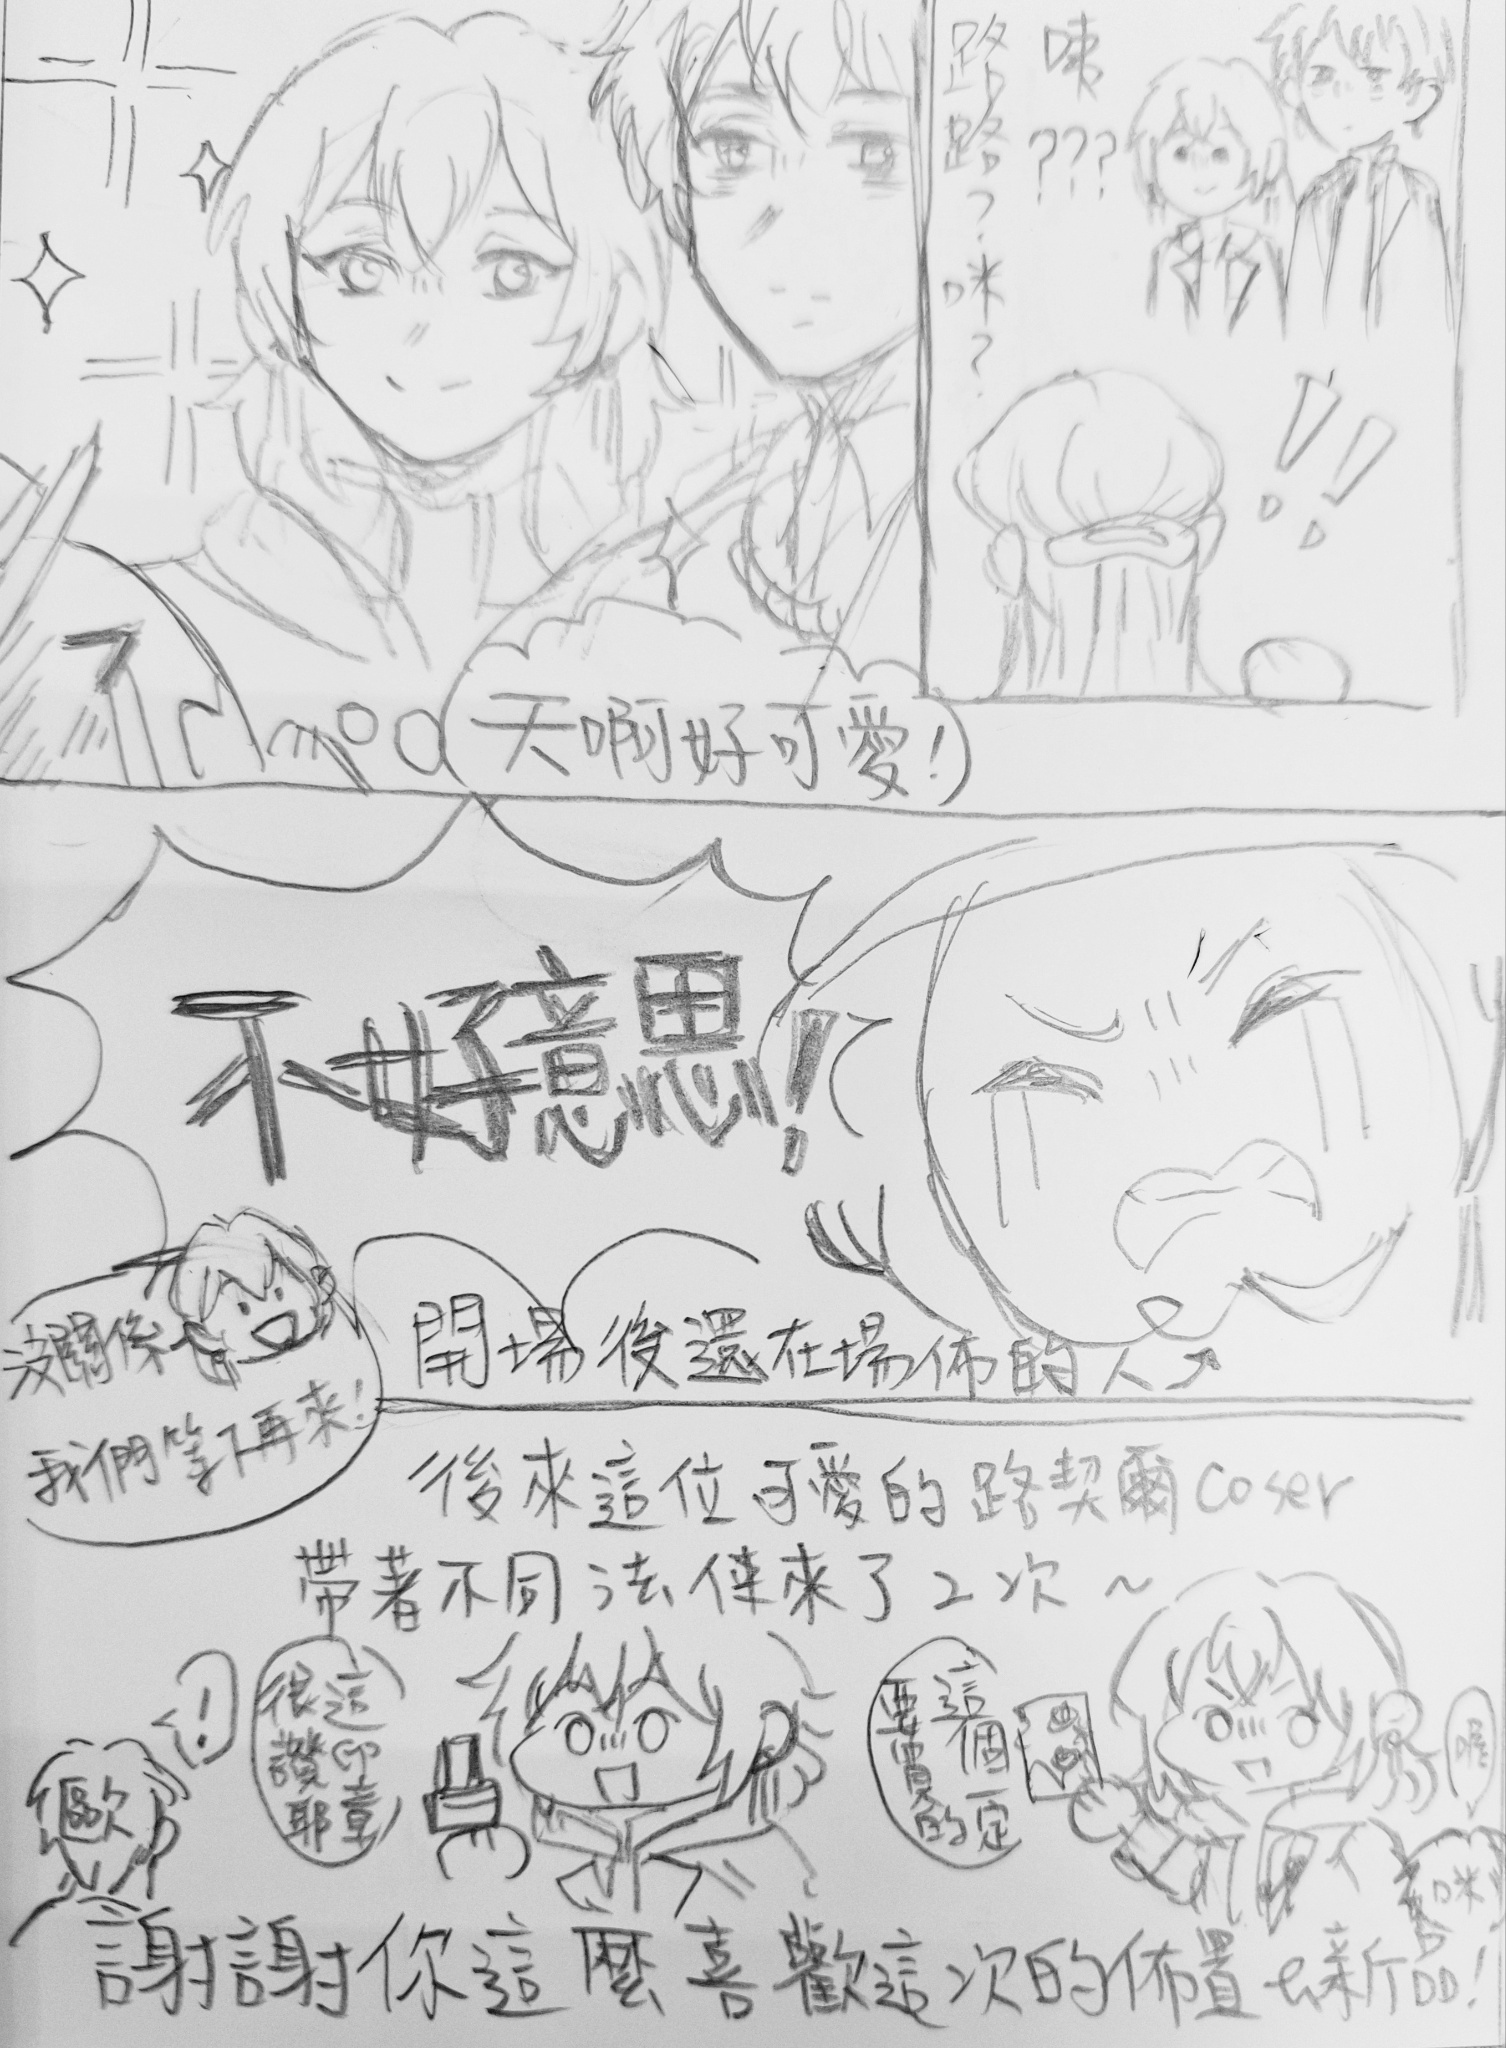 咦
???
路路?咪?
天啊好可愛!
不好意思!
沒關係
我們等下再來!
開場後還在場佈的人
後來這位可愛的路契爾coser
帶著不同法俠來了2次～
!
歐
這印章
很讚耶
這個一定
要買的
喔
咪
謝謝你這麼喜歡這次的佈置七新品!